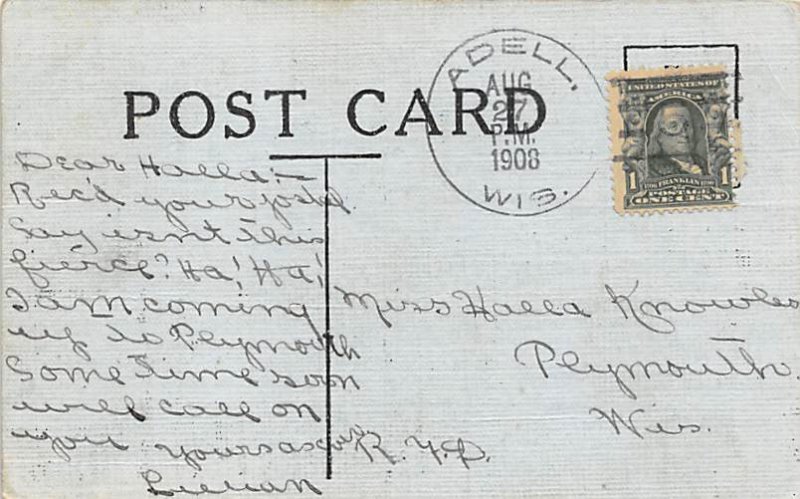 POST CARD
ADELL,
AUG
27
P.M.
1908
WIS.
UNITED STATES OF
AMERICA
1 FRANKLIN 1
POSTAGE
ONE CENT
Dear Halla:—
Rec'd your postal
Say isn't this
fierce? Ha! Ha!
I am coming
up to Plymouth
Some time soon
will call on
you yours as ever
Lillian
Miss Halla Knowles
Plymouth.
Wis.
R. F. D.